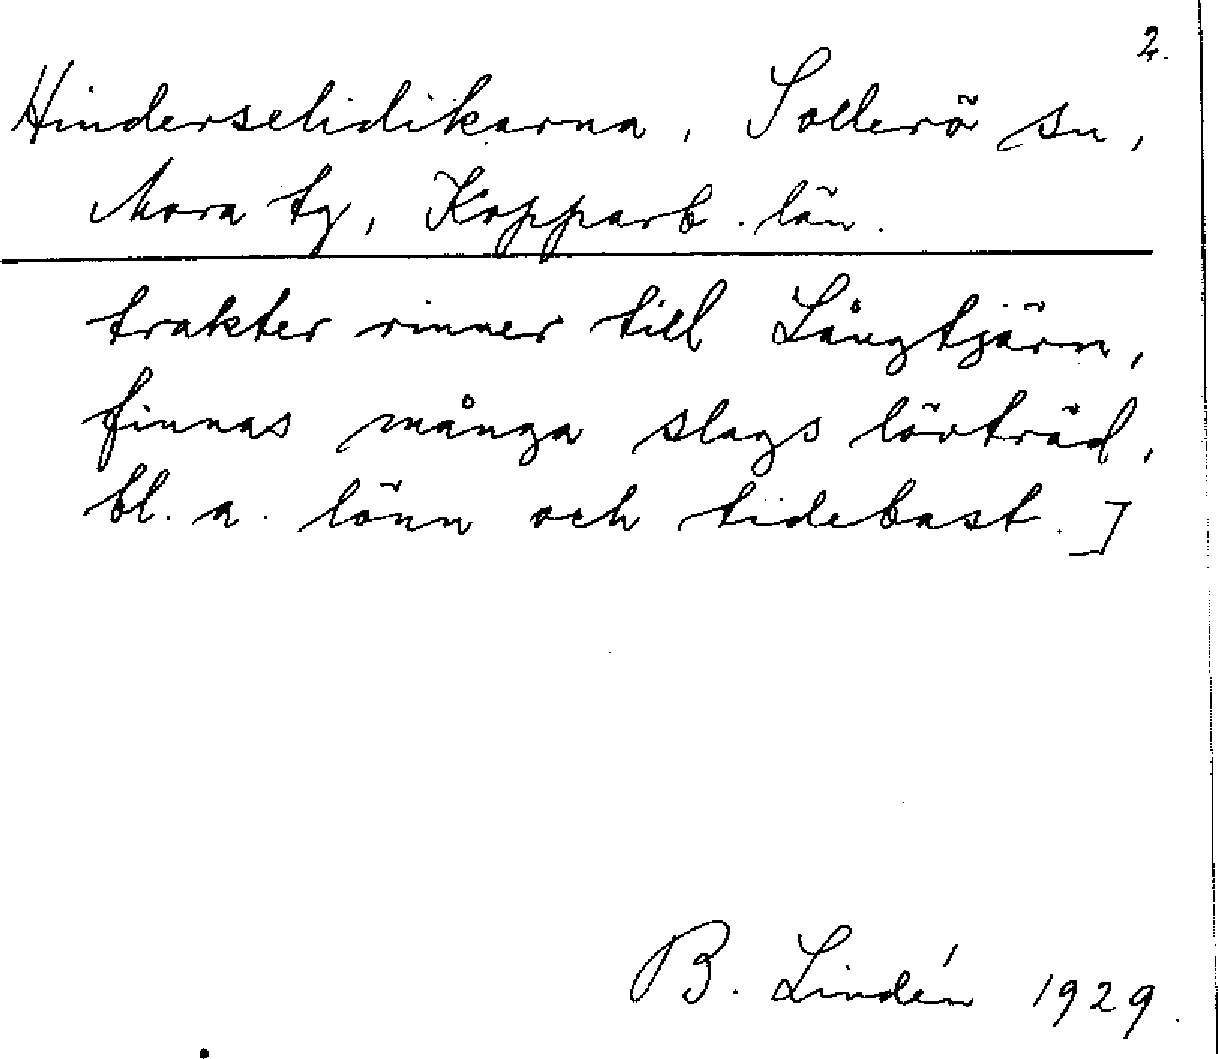 2.
Hinderselidikarna, Sollerö sn,
Mora tg, Kopparb. län.
trakter rinner till Långtjärn,
finnas många slags lövträd,
bl. a. lönn och tidebast.]
B. Lindén 1929.